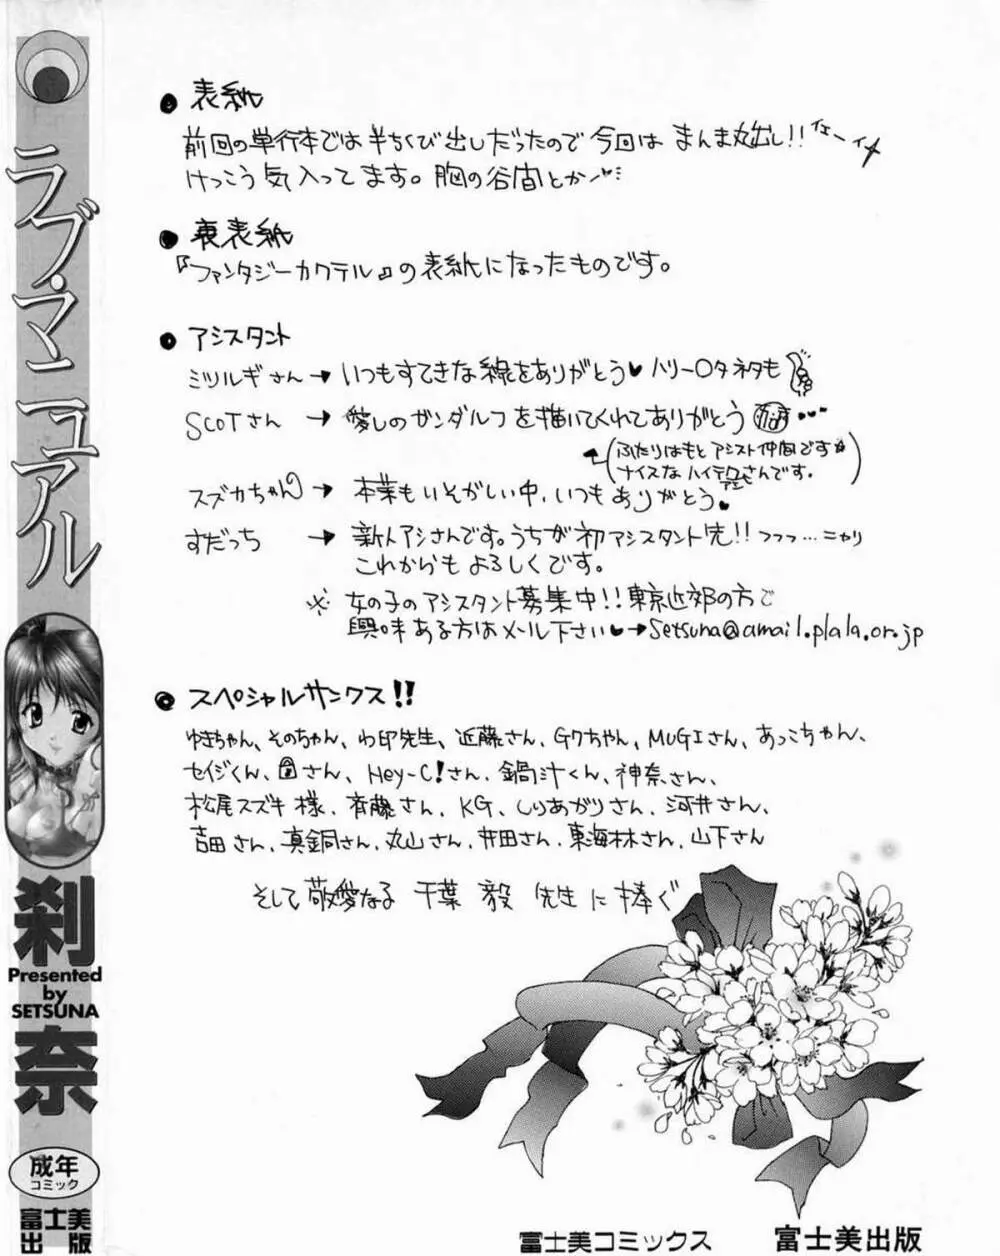 ラブ・マニュアル
刹奈
Presented
by
SETSUNA
成年
コミック
富士美
出版
● 表紙
前回の単行本では半ちくび出しだったので今回は まんま丸出し!! イェーイ
けっこう気入ってます。胸の谷間とか…
● 裏表紙
『ファンタジーカクテル』の表紙になったものです。
● アシスタント
ミツルギさん → いつもすてきな線をありがとう♥ ハリー〇タネタも
SCOTさん → 愛しのガンダルフを描いてくれてありがとう
(ふたりはもと アシスト仲間です☆
ナイスな ハイテクさんです。)
スズカちゃん → 本業もいそがしい中、いつもありがとう♥
すだっち → 新人アシさんです。うちが初アシスタント先!! フフフ…ニヤリ
これからも よろしくです。
※ 女の子のアシスタント募集中!! 東京近郊の方で
興味ある方はメール下さい♥→Setsuna@amail.plala.or.jp
● スペシャルサンクス!!
ゆきちゃん、そのちゃん、わ印先生、近藤さん、Gクちゃん、MUGIさん、あっこちゃん、
セイジくん、さん、Hey-C!さん、鍋汁くん、神奈さん、
松尾スズキ様、斉藤さん、KG、しりあがりさん、河井さん、
吉田さん、真鍋さん、丸山さん、井田さん、東海林さん、山下さん
そして、敬愛なる 千葉 毅 先生に捧ぐ
富士美コミックス
富士美出版